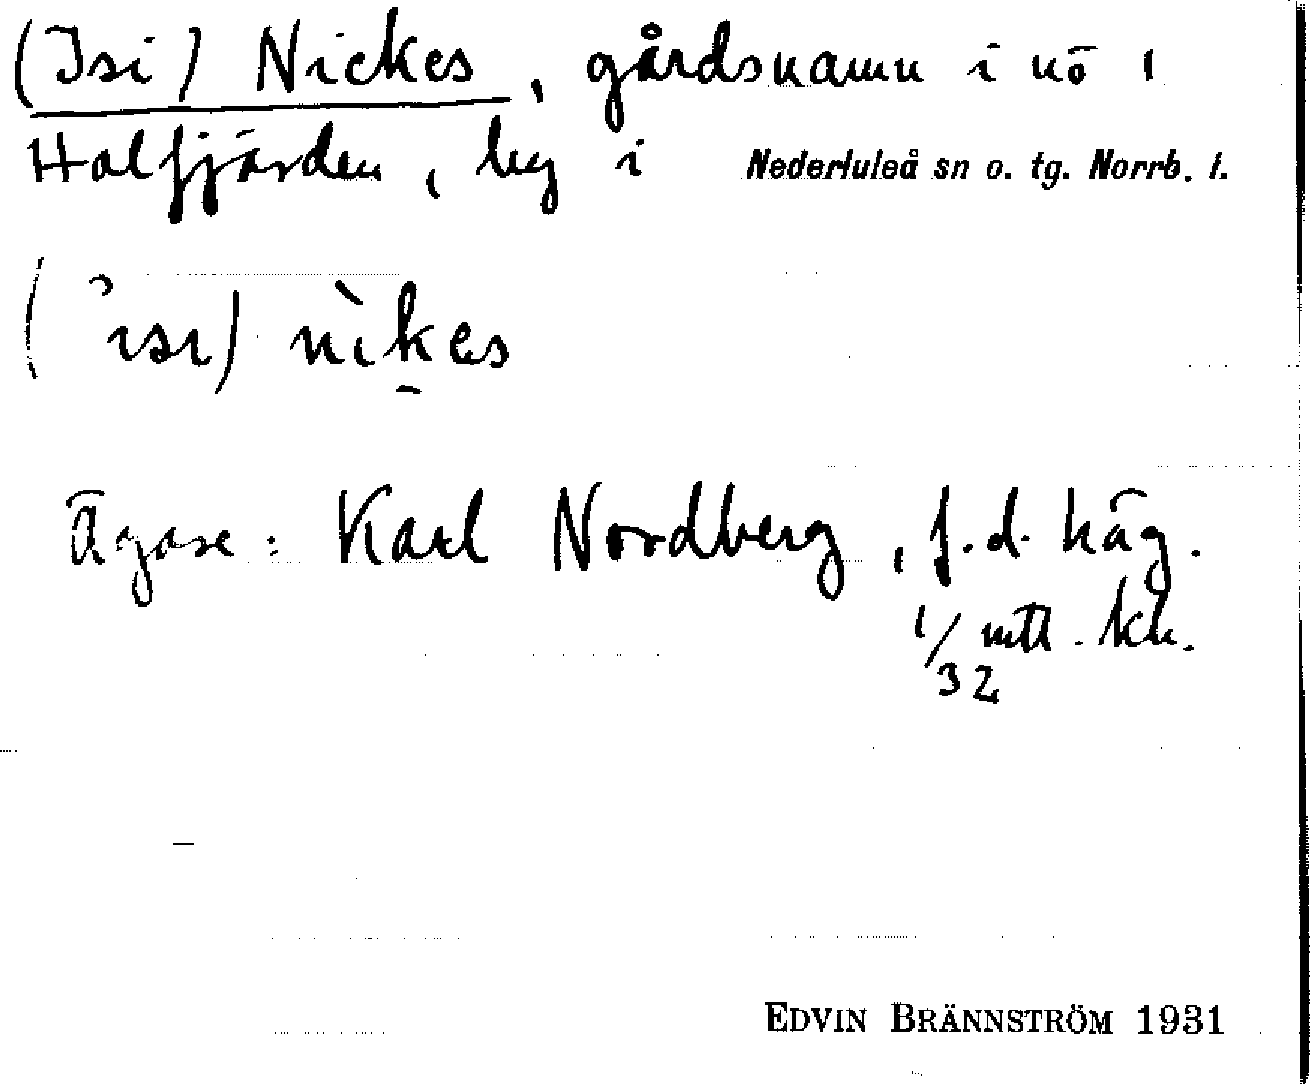 (Isi) Nickes, gårdsnamn i nö 1
Halfjärden, by i Nederluleå sn o. tg. Norrb. l.
(isi) nikes
Ägare: Karl Nordberg, f.d. häg.
1/32 mtl. kr.
EDVIN BRÄNNSTRÖM 1931